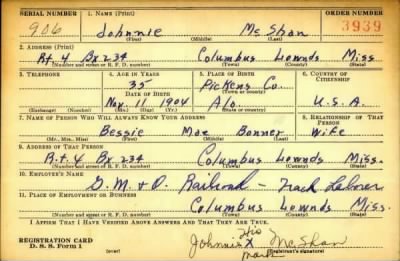 SERIAL NUMBER 1. NAME (Print) ORDER NUMBER
906 Johnnie Mc Shan 3939
(First) (Middle) (Last)
2. ADDRESS (Print)
Rt. 4 Bx 234 Columbus Lownds Miss.
(Number and street or R. F. D. number) (Town) (County) (State)
3. TELEPHONE 4. AGE IN YEARS 5. PLACE OF BIRTH 6. COUNTRY OF CITIZENSHIP
35 Pickens Co.
DATE OF BIRTH (Town or county)
Nov. 11 1904 Ala. U.S.A.
(Exchange) (Number) (Mo.) (Day) (Yr.) (State or country)
7. NAME OF PERSON WHO WILL ALWAYS KNOW YOUR ADDRESS 8. RELATIONSHIP OF THAT PERSON
Bessie Mae Bonner Wife
(Mr., Mrs., Miss) (First) (Middle) (Last)
9. ADDRESS OF THAT PERSON
Rt. 4 Bx 234 Columbus Lownds Miss.
(Number and street or R. F. D. number) (Town) (County) (State)
10. EMPLOYER'S NAME
G. M. & O. Railroad - Track Laborer
11. PLACE OF EMPLOYMENT OR BUSINESS
Columbus Lownds Miss.
(Number and street or R. F. D. number) (Town) (County) (State)
I AFFIRM THAT I HAVE VERIFIED ABOVE ANSWERS AND THAT THEY ARE TRUE.
REGISTRATION CARD
D. S. S. Form 1 (over)
His
Johnnie X Mc Shan
Mark
(Registrant's signature)